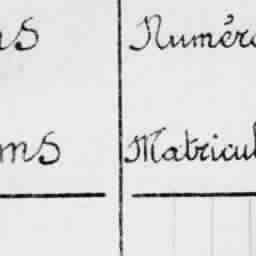 ns Numéro
ms Matricul